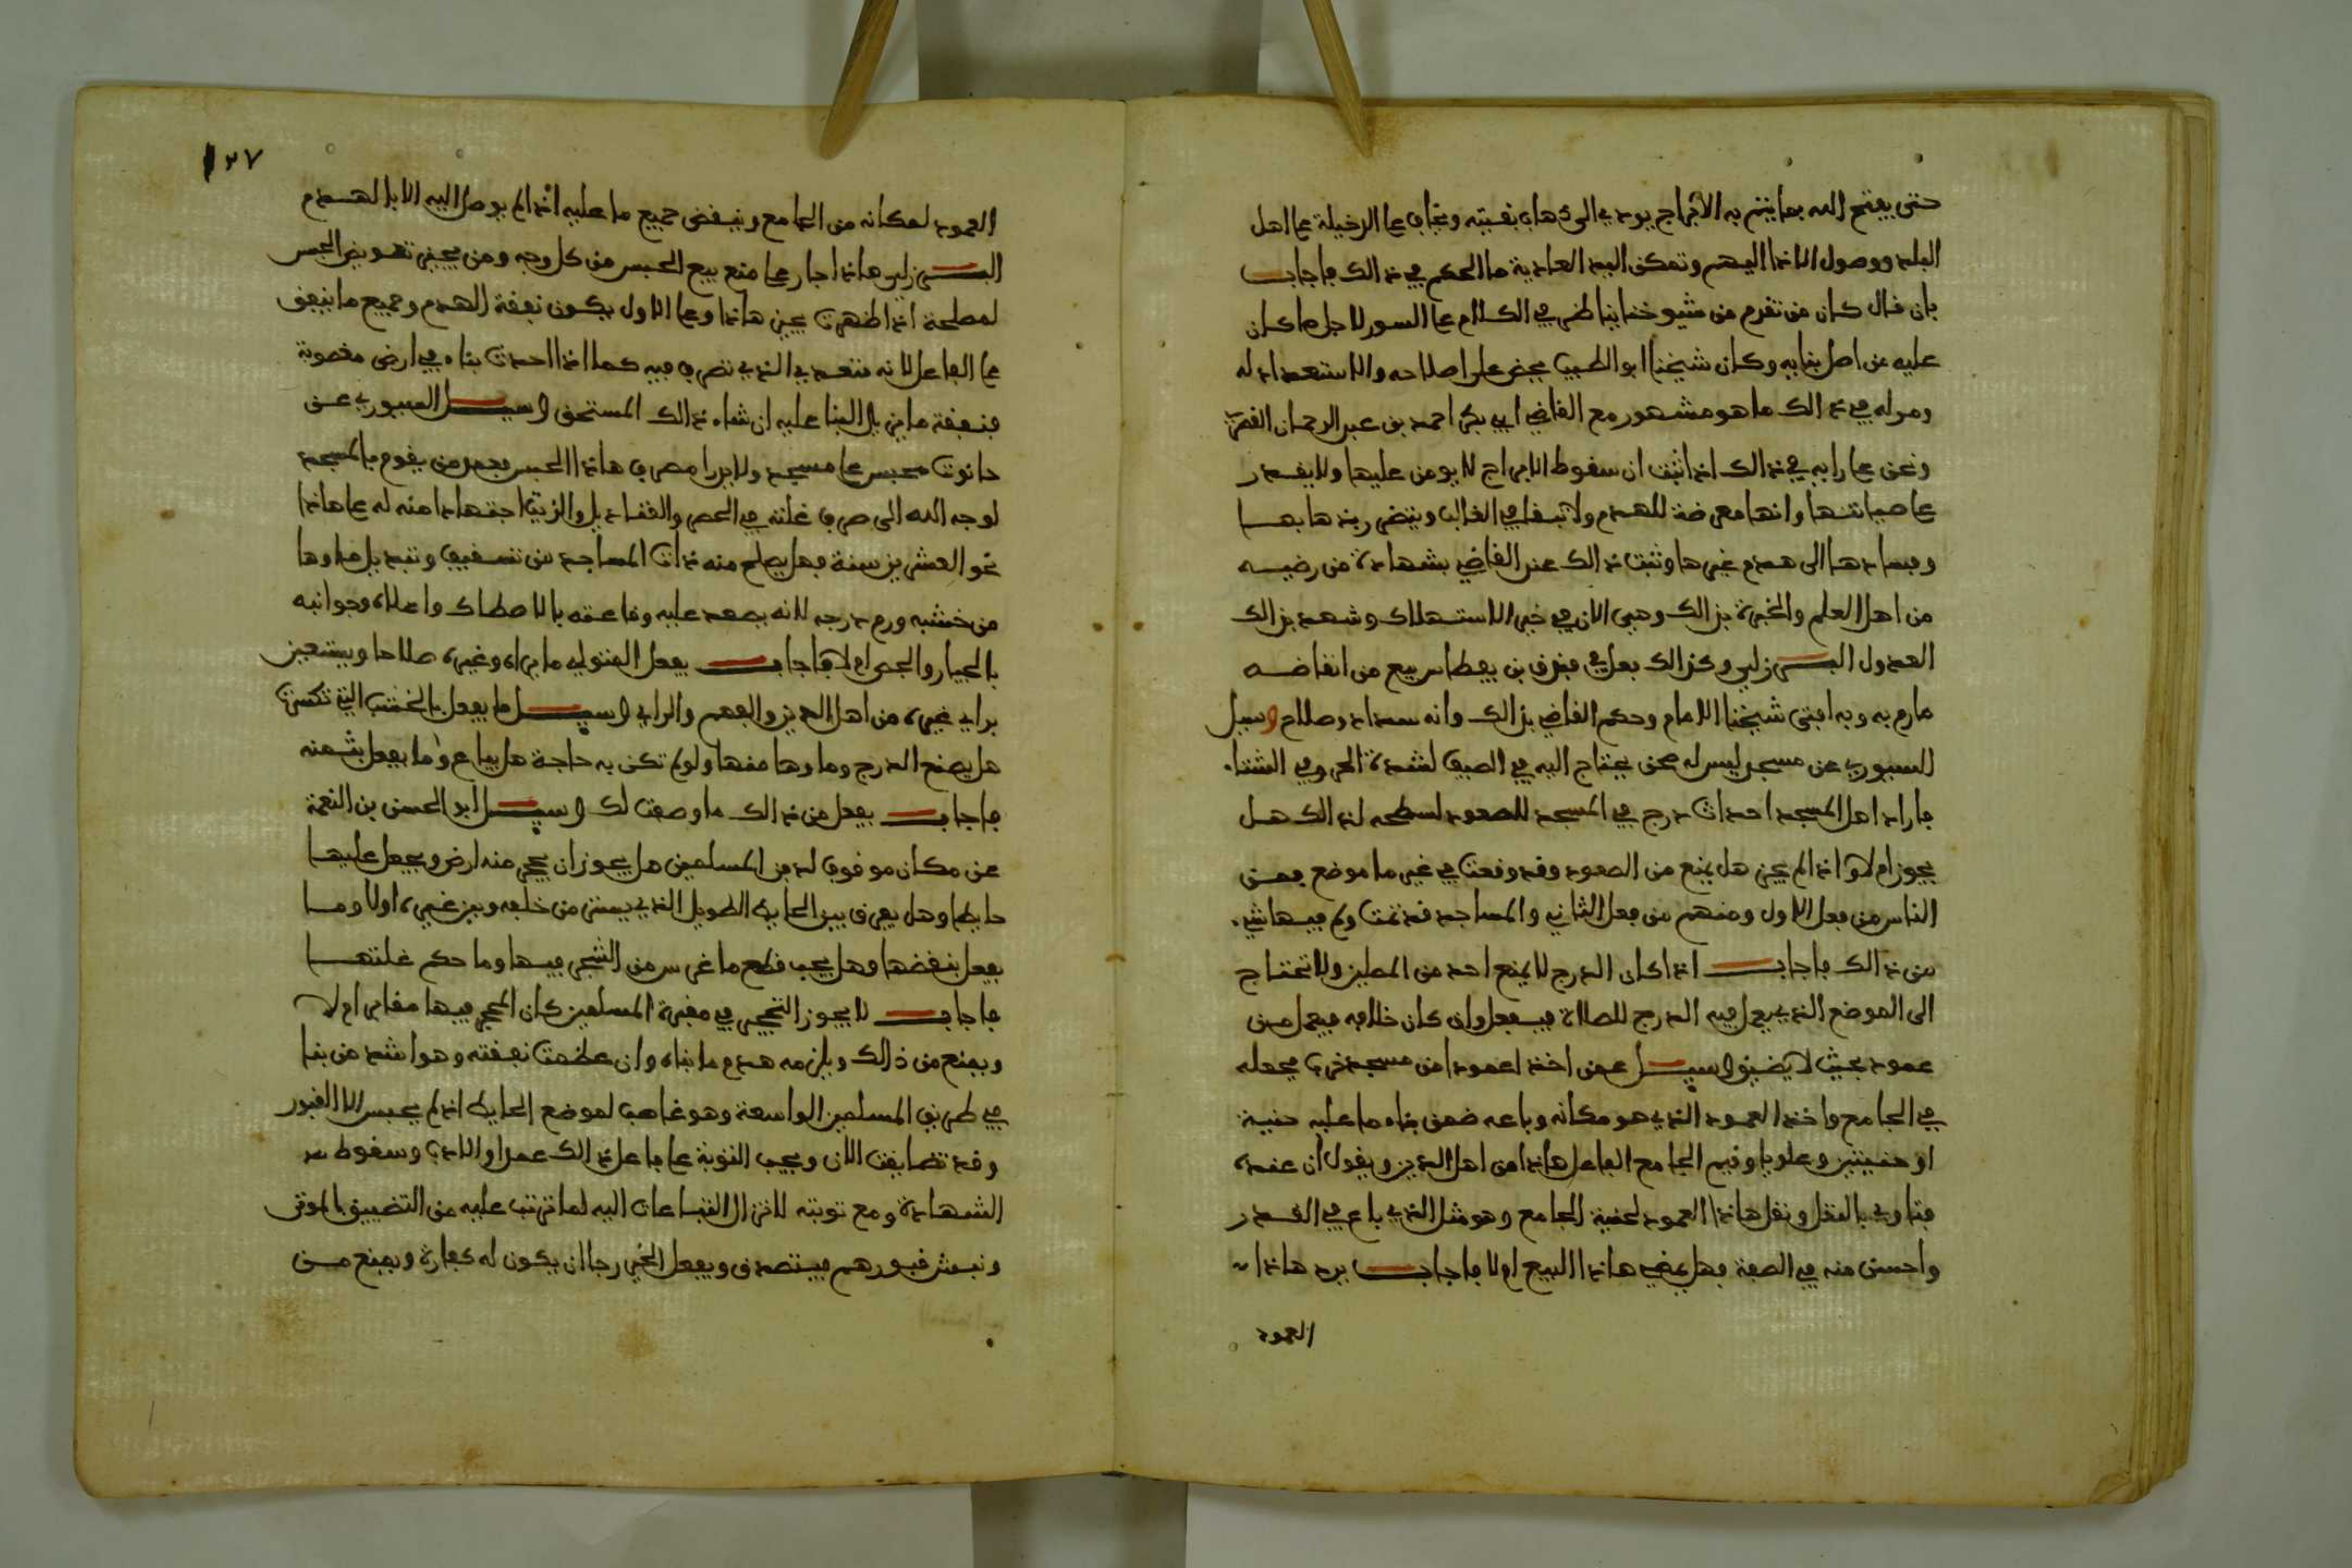 حتى يفتح الله بما يتم به الابراج يودي الى ذهاب بقيته ويخاف على الدخيلة على اهل
البلد ووصول الاذا اليهم وتمكن اليد العادية ما الحكم في ذالك فاجاب
بان قال كان من تقدم من شيوخنا يناظر في الكلام على السور لاجل ما كان
عليه من اصل بنايه وكان شيخنا ابو الطيب يحض على اصلاحه والاستعداد له
ومر له في ذالك ما هو مشهور مع القاضي ابي بكر احمد بن عبد الرحمان
ونحن على رايه في ذالك اذا ثبت ان سقوط الابراج لا يومن عليها ولا يقدر
على صيانتها وانها معرضة للهدم ولا تبقا في الغالب وينضر ربذها بها
وفسادها الى هدم غيرها وثبت ذالك عند القاضي بشهادة من رضيه
من اهل العلم والخبرة بذالك وهي الان في خبر الاستهلاك وشهد بذالك
العدول البرزلي وكذالك فعل في فندق بن يعطاس بيع من انقاضه
ما رم به وبه افتى شيخنا الامام وحكم القاضي بذالك وانه سداد وصلاح وسيل
السيوري عن مسجد ليس له صحن يحتاج اليه في الصيف لشدة الحر وفي الشتا.
فاراد اهل المسجد احداث درج في المسجد للصعود لسطحه لذالك هل
يجوز ام لا واذا لم يجز هل يمنع من الصعود وقد وقعت في غير ما موضع فمن
الناس من فعل الاول ومنهم من فعل الثاني والمساجد قد تمت ولم فيها شي.
من ذالك فاجاب اذا كان الدرج لا يمنع احد من المصلين ولا تحتاج
الى الموضع الذي يعمل فيه الدرج للصلاة فيفعل وان كان خلافه فيعمل من
عمود بحيث لا يضيق وسيل عمن اخذ عمودا من مسجد خرب فجعله
في الجامع واخذ العمود الذي هو مكانه وباعه ضمن بناه ما عليه حنية
او حنيتين وعلويا وقيم الجامع الفاعل هاذا من اهل الدين ويقول ان عنده
فتاوي بالنقل ونقل هاذا العمود لحنية الجامع وهو مثل الذي باع في القدر
واحسن منه في الصفة فهل يمضي هاذا البيع ام لا فاجاب يرد هاذا
العمود
١٢٧
العمود لمكانه من الجامع وينقض جميع ما عليه اذا لم يوصل اليه الا بالهدم
البرزلي هاذا جار على منع بيع الحبس من كل وجه ومن يجيز تعويض الحبس
لمصلحة اذا ظهرت يجيز هاذا وعلى الاول يكون نفقة الهدم وجميع ما ينفق
على الفاعل لانه متعدي الذي تصرف فيه كما اذا احدث بناء في ارض مغصوبة
فنفقة ما يزيل البنا عليه ان شاء ذالك المستحق وسيل السيوري عن
حانوت محبس على مسجد ولا يرا مصرف هاذا الحبس فعمر من يقوم بالمسجد
لوجه الله الى صرف غلته في الحصر والقناديل والزيت اجتهادا منه له على هاذا
نحو العشرين سنة فهل يصلح منه ذات المساجد من تسقيف وتبديل ما وها
من خشبه ورم درجه لانه يصعد عليه وقاعته بالاصطاك واعلاه وجوانبه
بالجيار والجص ام لا فاجاب يفعل المتولي ما يراه وغيره صلاحا ويستعين
براي غيره من اهل الدين والفهم والراي وسيل ما يفعل بالخشب التي تكسرت
هل يصلح الدرج وما وها منها ولو لم تكن به حاجة هل يباع وما يفعل بثمنه
فاجاب يفعل من ذالك ما وصفت لك وسيل ابو الحسن بن النعمة
عن مكان موقوف لدفن المسلمين هل يجوز ان يحجر منه ارض ويجعل عليها
حايطا وهل يفرق بين الحايط الطويل الذي يستر من خلفه وبين غيره اولا وما
يفعل بنقضها وهل يجب قطع ما غرس من الشجر فيها وما حكم غلتها
فاجاب لا يجوز التحجير في مقبرة المسلمين كان المحجر فيها مقابر ام لا
ويمنع من ذالك ويلزمه هدم ما بناه وان عظمت نفقته وهو اشد من بنا
في طريق المسلمين الواسعة وهو غاصب لموضع الحايط اذ لم يحبس الا القبور
وقد تضايقت الان ويجب التوبة على فاعل ذالك عمدا والادب وسقوط
الشهادة ومع توبته لا تزال التباعات اليه لما ترتب عليه من التضييق بالموتى
ونبش قبورهم فيتصدق ويفعل الخير رجا ان يكون له كفارة ويمنع من